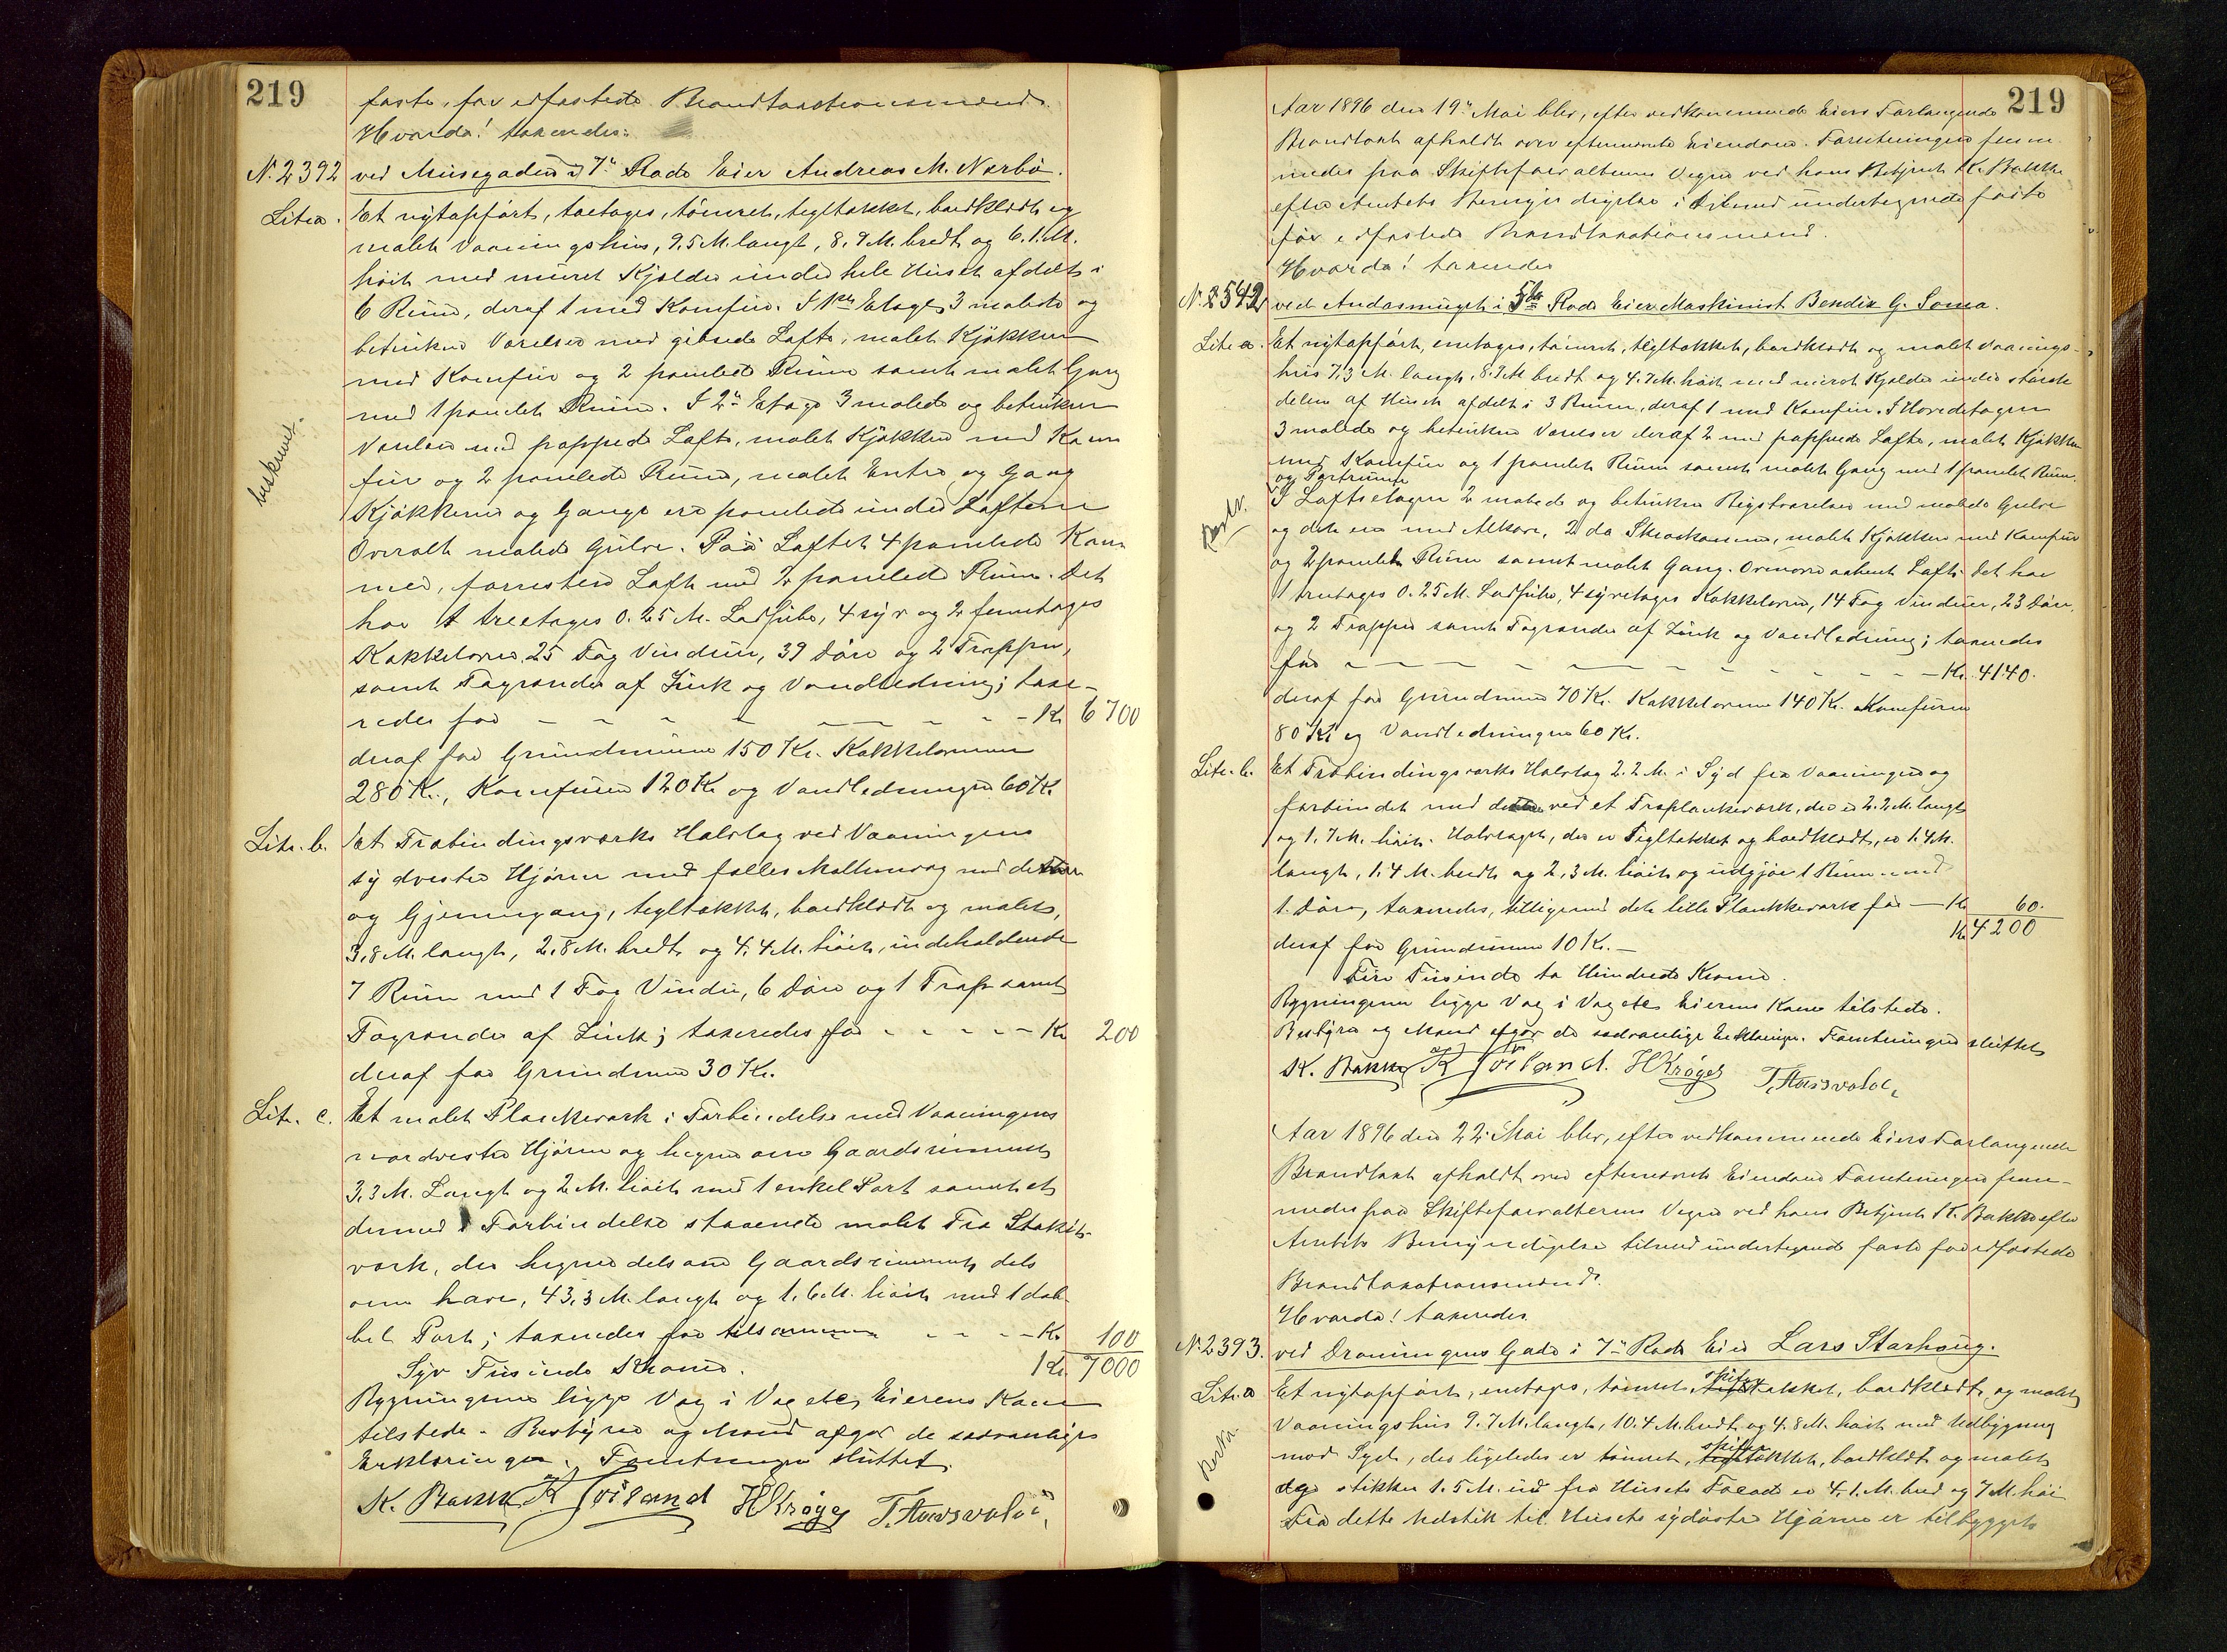 219
faste, før edfæstede Brandtaxtionsmænd.
Hvorda! taxeredes:
N. 2392 ved Musegaden i 7de Rode Eier Andreas M. Nærbø.
Litra a. Et nyt opført, toetages, tømret, tegltækket, bordklædt og
malet Vaaningshus, 9.5 M. langt, 8.9 M. bredt og 6.1. M.
høit med muret Kjelder under hele Huset afdelt i
6 Rum, deraf 1 med Komfur. I 1ste Etage 3 malede og
betrukne Værelser med gibsede Lofte, malet Kjøkken
med Komfur og 2 panelede Rum samt malet Gang
med 1 panelet Rum. I 2den Etage 3 malede og betrukne
Værelser med pappede Lofte, malet Kjøkken med Kom
fur og 2 panelede Rum, malet Entre og Gang
Kjøkkene og Gange ere panelede under Loftene
Overalt malede Gulve. Paa Loftet 4 panelede Kam
mer, forresten Loft med 2 panelede Rum. Det
har 1 treetages 0.25 M. Ladpibe, 4 syv og 2 femetages
Kakkelovne, 25 Fag Vinduer, 39 Døre og 2 Trapper,
samt Tagrender af Zink og Vandledning; taxe-
redes for - - - - - - - Kr. 6700
deraf for Grundmuren 150 Kr. Kakkelovnene
280 Kr., Komfurene 120 Kr. og Vandledningen 60 Kr.
Litr. b. Et Træbindingsværks Halvtag ved Vaaningens
sydvestre Hjørne med fælles Mellemvæg med dette
og Gjennemgang, tegltækket, bordklædt og malet,
3,8 M. langt, 2,8 M. bredt og 4,4 M. høit, indeholdende
7 Rum med 1 Fag Vindu, 6 Døre og 1 Trappe samt
Tagrender af Zink; taxeredes for - - - - Kr. 200
deraf for Grundmuren 30 Kr.
Litr. c. Et malet Plankeværk i Forbindelse med Vaaningens
nordvestre Hjørne og hegner om Gaardsrummet
3,3 M. Langt og 2 M. høit med 1 enkel Port samt et
dermed i Forbindelse staaende malet Træ Stakit-
værk, der hegner dels om Gaardsrummet, dels
om have, 43,3 M. langt og 1.6 M. høit med 1 dob
bel Port; taxeredes for tilsammen - - - - Kr. 100
Syv Tusinde Kroner. Kr. 7000
Bygningerne ligge Væg i Væg etc. Eierens Kone
tilstede. Bestyrer og Mænd afgav de sædvanlige
Erklæringer. Forretningen sluttet.
K. Bakke R Jøsland HKrøger T. Hausvolde
beskrevet.
219
Aar 1896 den 19de Mai blev, efter vedkommende Eiers Forlangende
Brandtaxt afholdt over efternævnte Eiendom. Forretningen frem-
medes paa Skifteforvalterens Vegne ved hans Betjent K. Bakke
efter Amtets Bemyndigelse i tilmed undertegnede faste
før edfæstede Brandtaxationsmænd.
Hvorda! taxeredes
N. 2542 ved Andasmuget i 5te Rode Eier Maskinist Bendix G. Soma.
Litr. a. Et nyt opført, enetages, tømret, tegltækket, bordklædt og malet Vaanings-
hus 7,3 M. langt, 8.7 M bredt og 4.7 M. høit med muret Kjelder under største
delen af Huset afdelt i 3 Rum, deraf 1 med Komfur. I Hovedetagen
3 malede og betrukne Værelser deraf 2 med pappede Lofte, malet Kjøkken
med Komfur og 1 panelet Rum samt malet Gang med 1 panelet Rum.
og Portrum
I Loftsetagen 2 malede og betrukne Kvistværelser med malede Gulve
og det ene med Alkove, 2 do Skraakammer, malet Kjøkken med Komfur
og 2 panelede Rum samt malet Gang. Ovenover aabent Loft. Det har
1 treetages 0.25 M. Ladpibe, 4 syvetages Kakkelovne, 14 Fag Vinduer, 23 Døre,
og 2 Trapper samt Tagrender af Zink og Vandledning; taxeredes
for - - - - - - - - - - Kr. 4140.
deraf for Grundmuren 70 Kr. Kakkelovnene 140 Kr. Komfurene
80 Kr. og Vandledningen 60 Kr.
Litr. b. Et Træbindingsværks Halvtag 2.2 M. i Syd fra Vaaningen og
forbundet med dette ved et Træplankeværk, der er 2.2 M. langt
og 1.7 M. høit. Halvtaget, der er Tegltækket og bordklædt, er 1.4 M.
langt, 1.4 M. bredt og 2,3 M. høit og udgjør 1 Rum med
1. Dør, taxeredes, tilligemed dets lille Plankeværk for — Kr. 60.
deraf for Grundmuren 10 Kr. — Kr. 4200
Fire Tusinde to Hundrede Kroner.
Bygningerne ligge Væg i Væg etc. Eierens Kone tilstede.
Bestyrer og Mænd afgav de sædvanlige Erklæringer. Forretningen sluttet
K. Bakke R Jøsland. HKrøger T. Hausvolde
Aar 1896 den 22de Mai blev, efter vedkommende Eiers Forlangende
Brandtaxt afholdt over eftернævnte Eiendom Forretningen frem-
medes paa Skifteforvalterens Vegne ved hans Betjent K. Bakke efter
Amtets Bemyndigelse tilmed undertegnede faste før edfæstede
Brandtaxationsmænd.
Hvorda! taxeredes
N. 2393. ved Dronningens Gade i 7de Rode Eier Lars Starhaug.
Litr. a Et nyt opført, enetages, tømret, skifertækket, bordklædt og malet
Vaaningshus 9.7 M. langt, 10.4 M. bredt og 4.8 M. høit med Udbygning
mod Syd, der ligeledes er tømret, skifertækket, bordklædt og malet
og stikker 1.5 M. ud fra Husets Facade er 4.1. M. bred og 7 M. høi
Fra dette Udstik til Husets sydøstre Hjørne er tilbygget